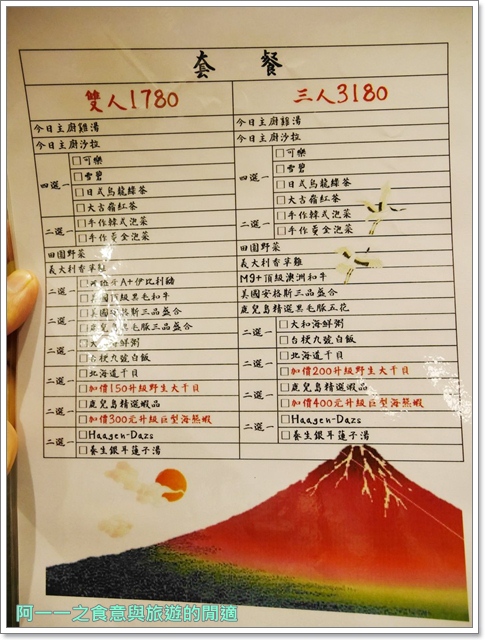 套餐
雙人1780
今日主廚雞湯
今日主廚沙拉
四選一
□可樂
□雪碧
□日式烏龍綠茶
□大吉嶺紅茶
二選一
□手作韓式泡菜
□手作黃金泡菜
田園野菜
義大利香草雞
二選一
A+伊比利豬
級黑毛和牛
二選一
□美國安格斯三品盛合
□鹿兒島黑毛豚三品盛合
二選一
海鮮粥
□台梗九號白飯
二選一
□北海道干貝
□加價150升級野生大干貝
二選一
□鹿兒島精選蝦品
□加價300元升級巨型海熊蝦
二選一
□Haagen-Dazs
□養生銀耳蓮子湯
三人3180
今日主廚雞湯
今日主廚沙拉
四選一
□可樂
□雪碧
□日式烏龍綠茶
□大吉嶺紅茶
二選一
□手作韓式泡菜
□手作黃金泡菜
田園野菜
義大利香草雞
M9+頂級澳洲和牛
美國安格斯三品盛合
鹿兒島精選黑毛豚五花
二選一
□大和海鮮粥
□台梗九號白飯
二選一
□北海道干貝
□加價200升級野生大干貝
二選一
□鹿兒島精選蝦品
□加價400元升級巨型海熊蝦
二選一
□Haagen-Dazs
□養生銀耳蓮子湯
阿一一之食意與旅遊的閒適